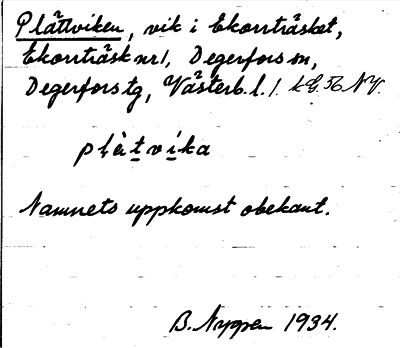 Plättviken, vik i Ekorrträsket,
Ekorrträsk nr 1, Degerfors sn,
Degerfors tg, Västerb. l. 56 NV.
plätvika
Namnets uppkomst obekant.
B. Nyppen 1934.